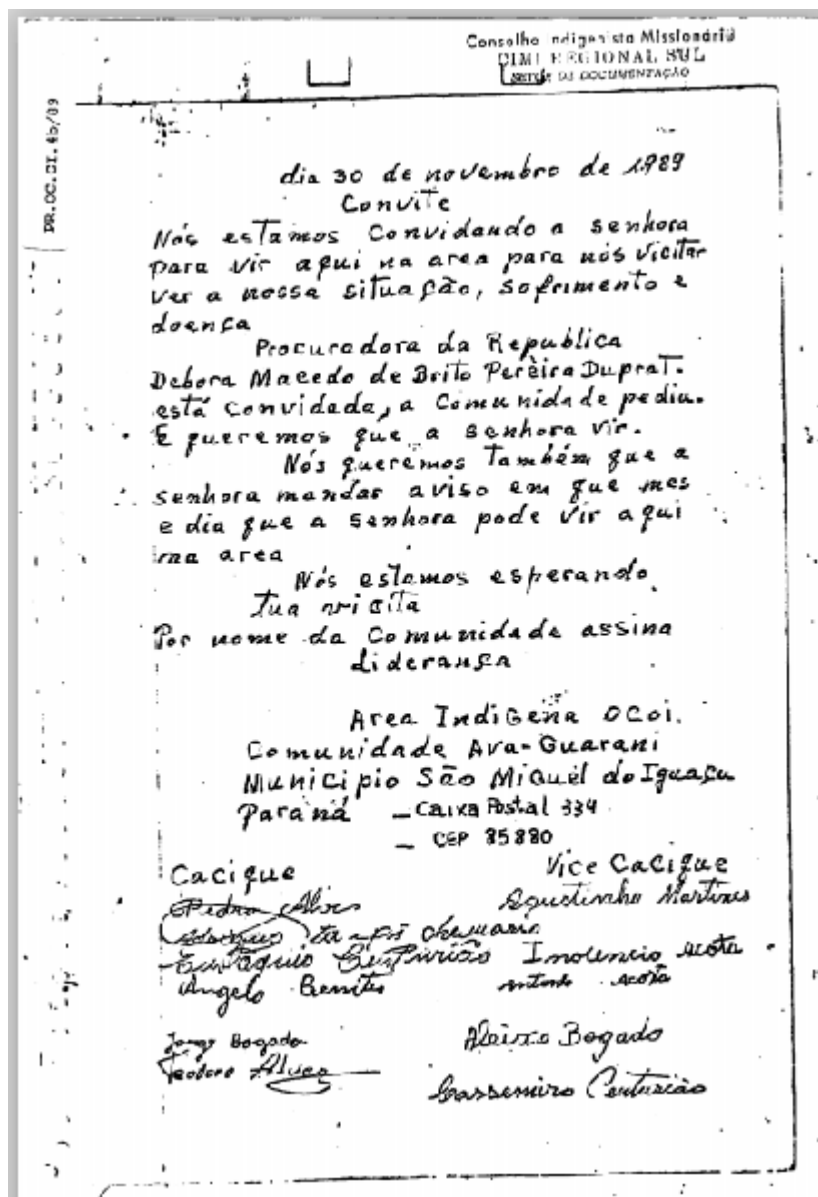 Conselho Indigenista Missionário
CIMI REGIONAL SUL
SETOR DE DOCUMENTAÇÃO
PR.OC.CI.4b/89
dia 30 de novembro de 1989
Convite
Nós estamos Convidando a senhora
para vir aqui na area para nós vicitar
ver a nossa situação, sofrimento e
doença
Procuradora da Republica
Debora Macedo de Brito Perèira Duprat.
está Convidada, a Comunidade pediu.
E queremos que a senhora vir.
Nós queremos também que a
senhora mandar aviso em que mes
e dia que a senhora pode vir aqui
na area
Nós estamos esperando
tua vicita
Por nome da Comunidade assina
liderança
Area IndiGena OCoi.
Comunidade Ava-Guarani
Municipio São Miguel do Iguaçu
Paraná – Caixa Postal 334
– CEP 85880
Cacique
Vice Cacique
Pedro Alves
Agustinho Martines
Centurião Inolencio Acosta
Angelo Benites
Antonio Acosta
Jorge Bogado
Aleixo Bogado
Teodoro Alves
Cassemiro Centurião